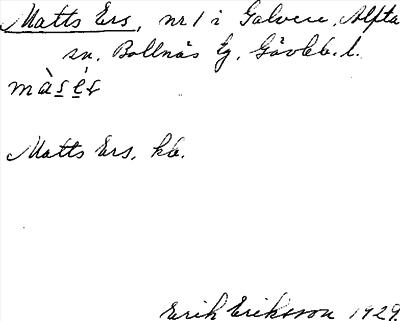 Matts Ers, nr 1 i Galven, Alfta
sn. Bollnäs tg. Gävleb. l.
màsés
Matts Ers, kb.
Erik Eriksson 1929.